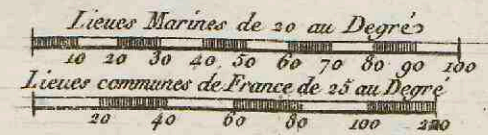 Lieues Marines de 20 au Degré
10 20 30 40 50 60 70 80 90 100
Lieues communes de France de 25 au Degré
20 40 60 80 100 120